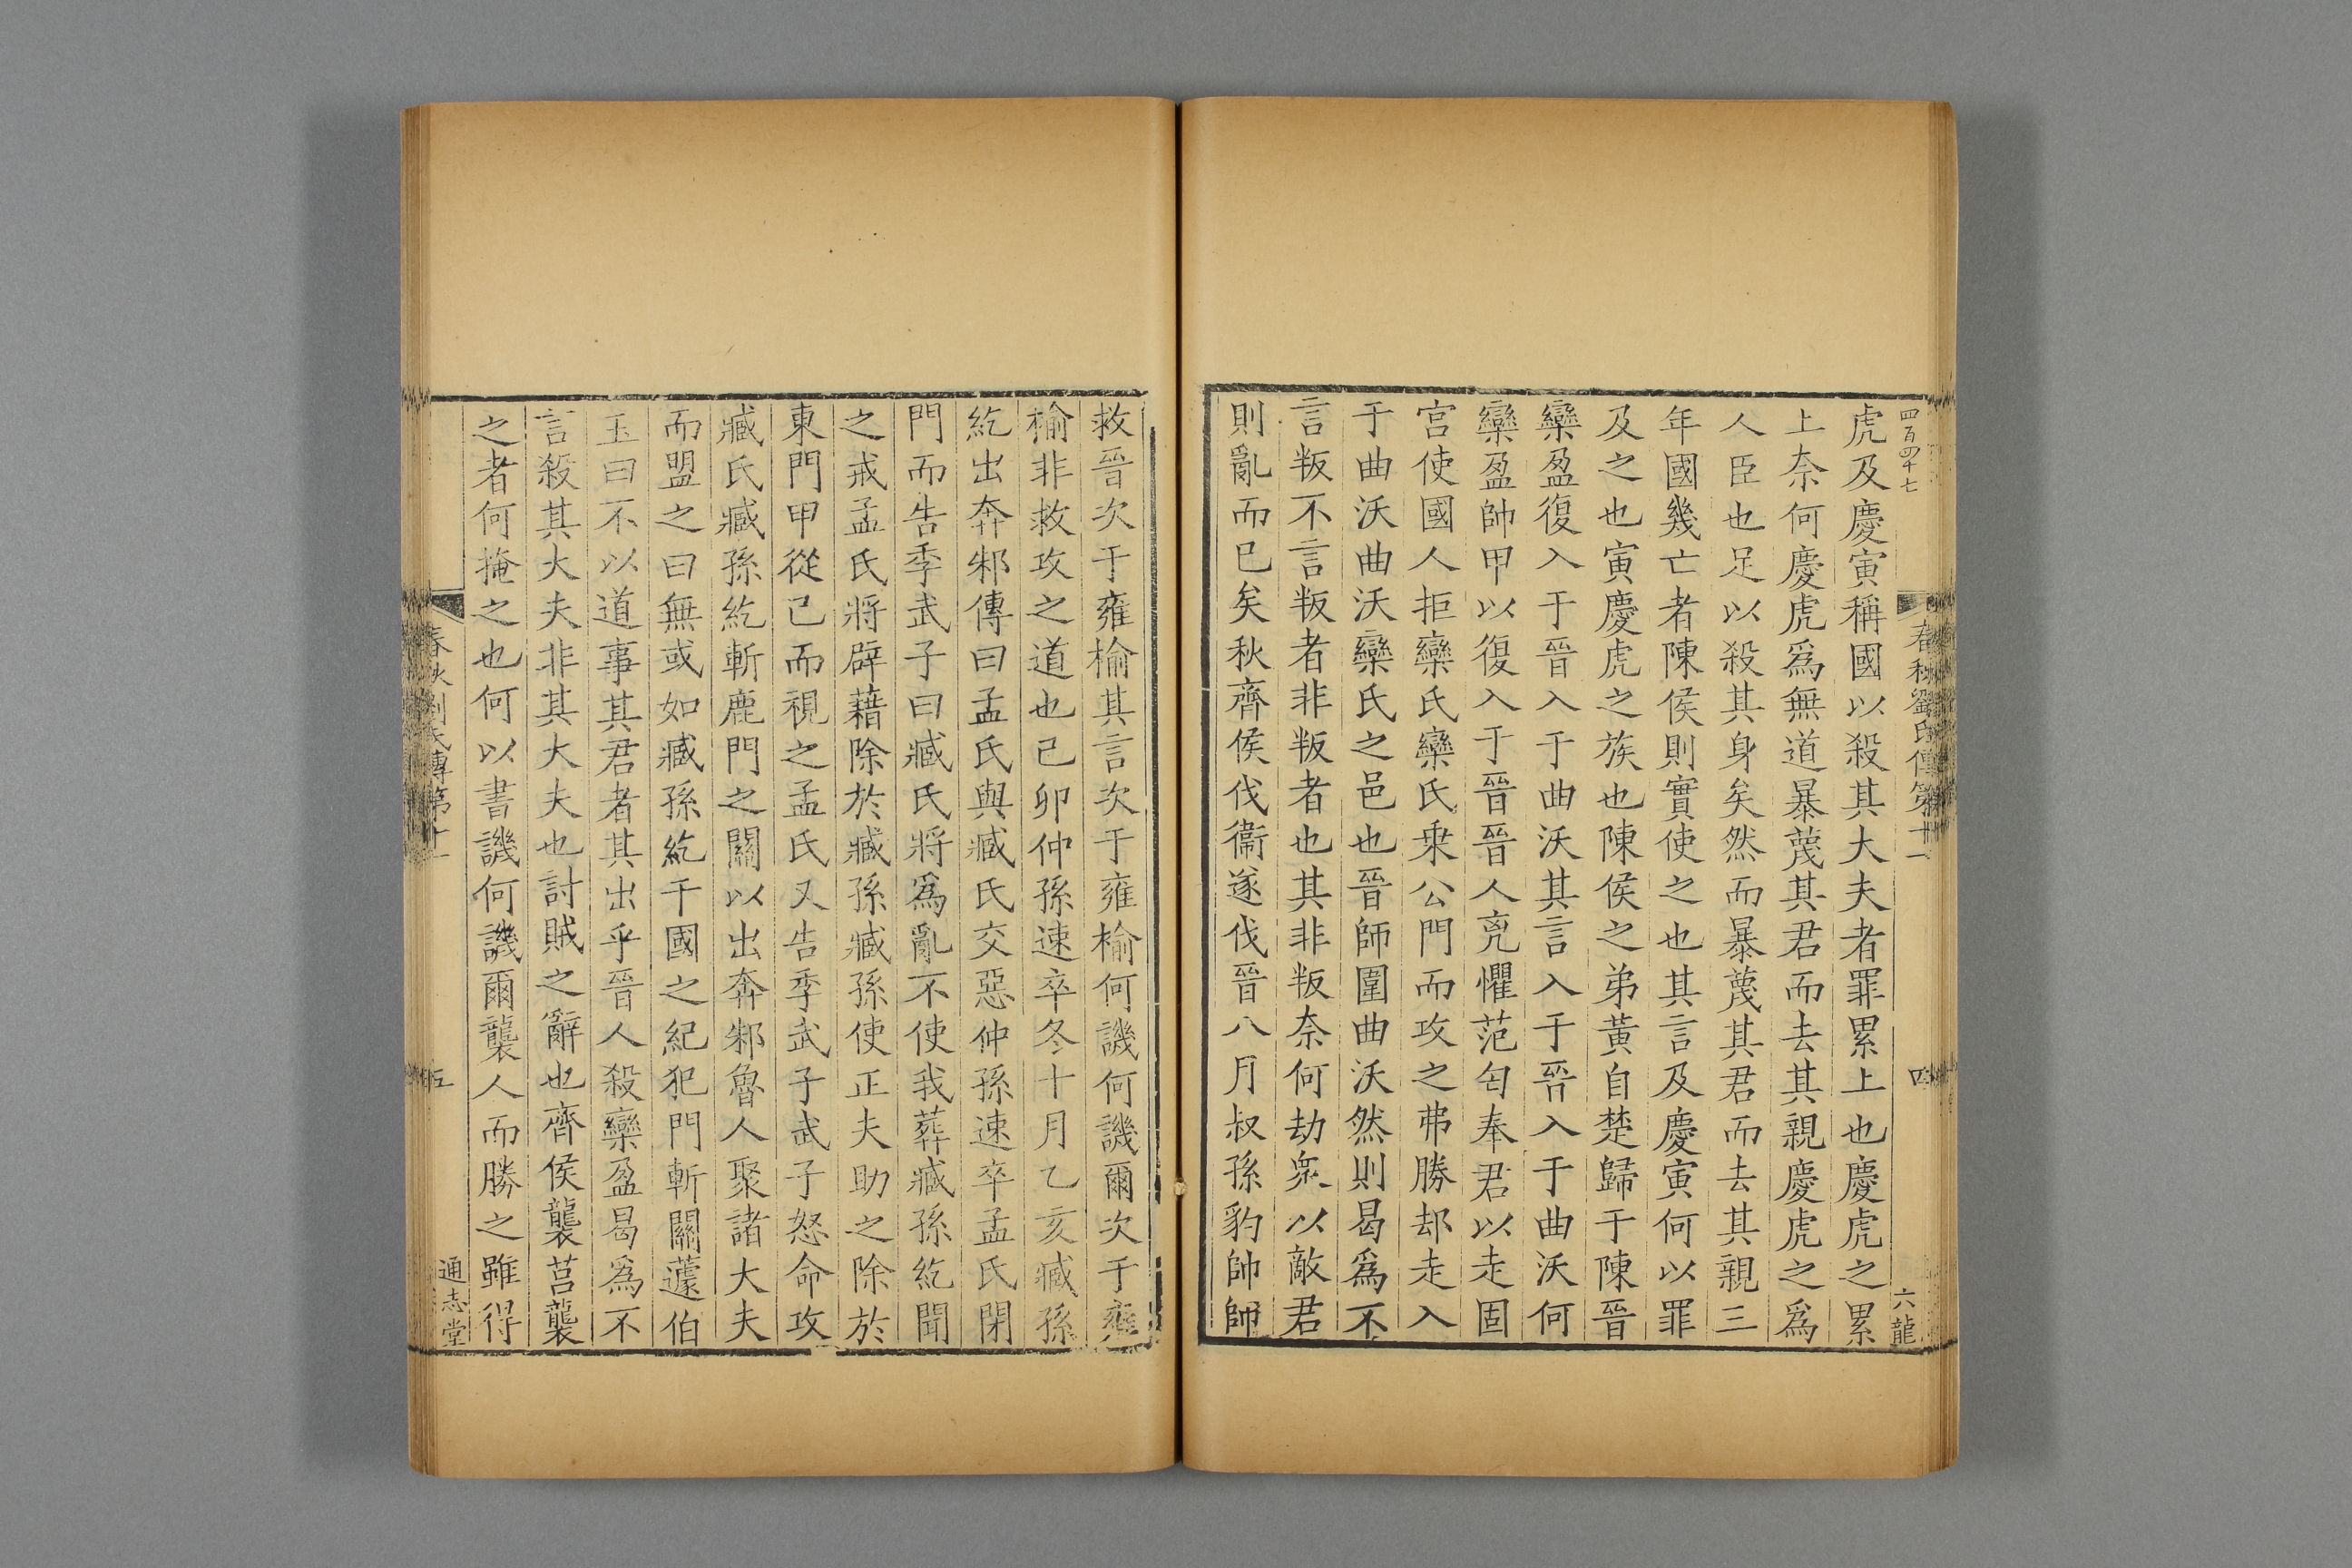 四百四十七
春秋劉氏傳第十一
四
六龍
虎及慶寅稱國以殺其大夫者罪累上也慶虎之累
上奈何慶虎爲無道暴蔑其君而去其親慶虎之爲
人臣也足以殺其身矣然而暴蔑其君而去其親三
年國幾亡者陳侯則實使之也其言及慶寅何以罪
及之也寅慶虎之族也陳侯之弟黃自楚歸于陳晉
欒盈復入于晉入于曲沃其言入于晉入于曲沃何
欒盈帥甲以復入于晉晉人兇懼范匄奉君以走固
宮使國人拒欒氏欒氏乗公門而攻之弗勝却走入
于曲沃曲沃欒氏之邑也晉師圍曲沃然則曷爲不
言叛不言叛者非叛者也其非叛奈何劫衆以敵君
則亂而已矣秋齊侯伐衞遂伐晉八月叔孫豹帥師
救晉次于雍榆其言次于雍榆何譏何譏爾次于雍
榆非救攻之道也己卯仲孫速卒冬十月乙亥臧孫
紇出奔邾傳曰孟氏與臧氏交惡仲孫速卒孟氏閉
門而告季武子曰臧氏將爲亂不使我葬臧孫紇聞
之戒孟氏將辟藉除於臧孫臧孫使正夫助之除於
東門甲從己而視之孟氏又告季武子武子怒命攻
臧氏臧孫紇斬鹿門之關以出奔邾魯人聚諸大夫
而盟之曰無或如臧孫紇干國之紀犯門斬關蘧伯
玉曰不以道事其君者其出乎晉人殺欒盈曷爲不
言殺其大夫非其大夫也討賊之辭也齊侯襲莒襲
之者何掩之也何以書譏何譏爾襲人而勝之雖得
春秋劉氏傳第十一
五
通志堂